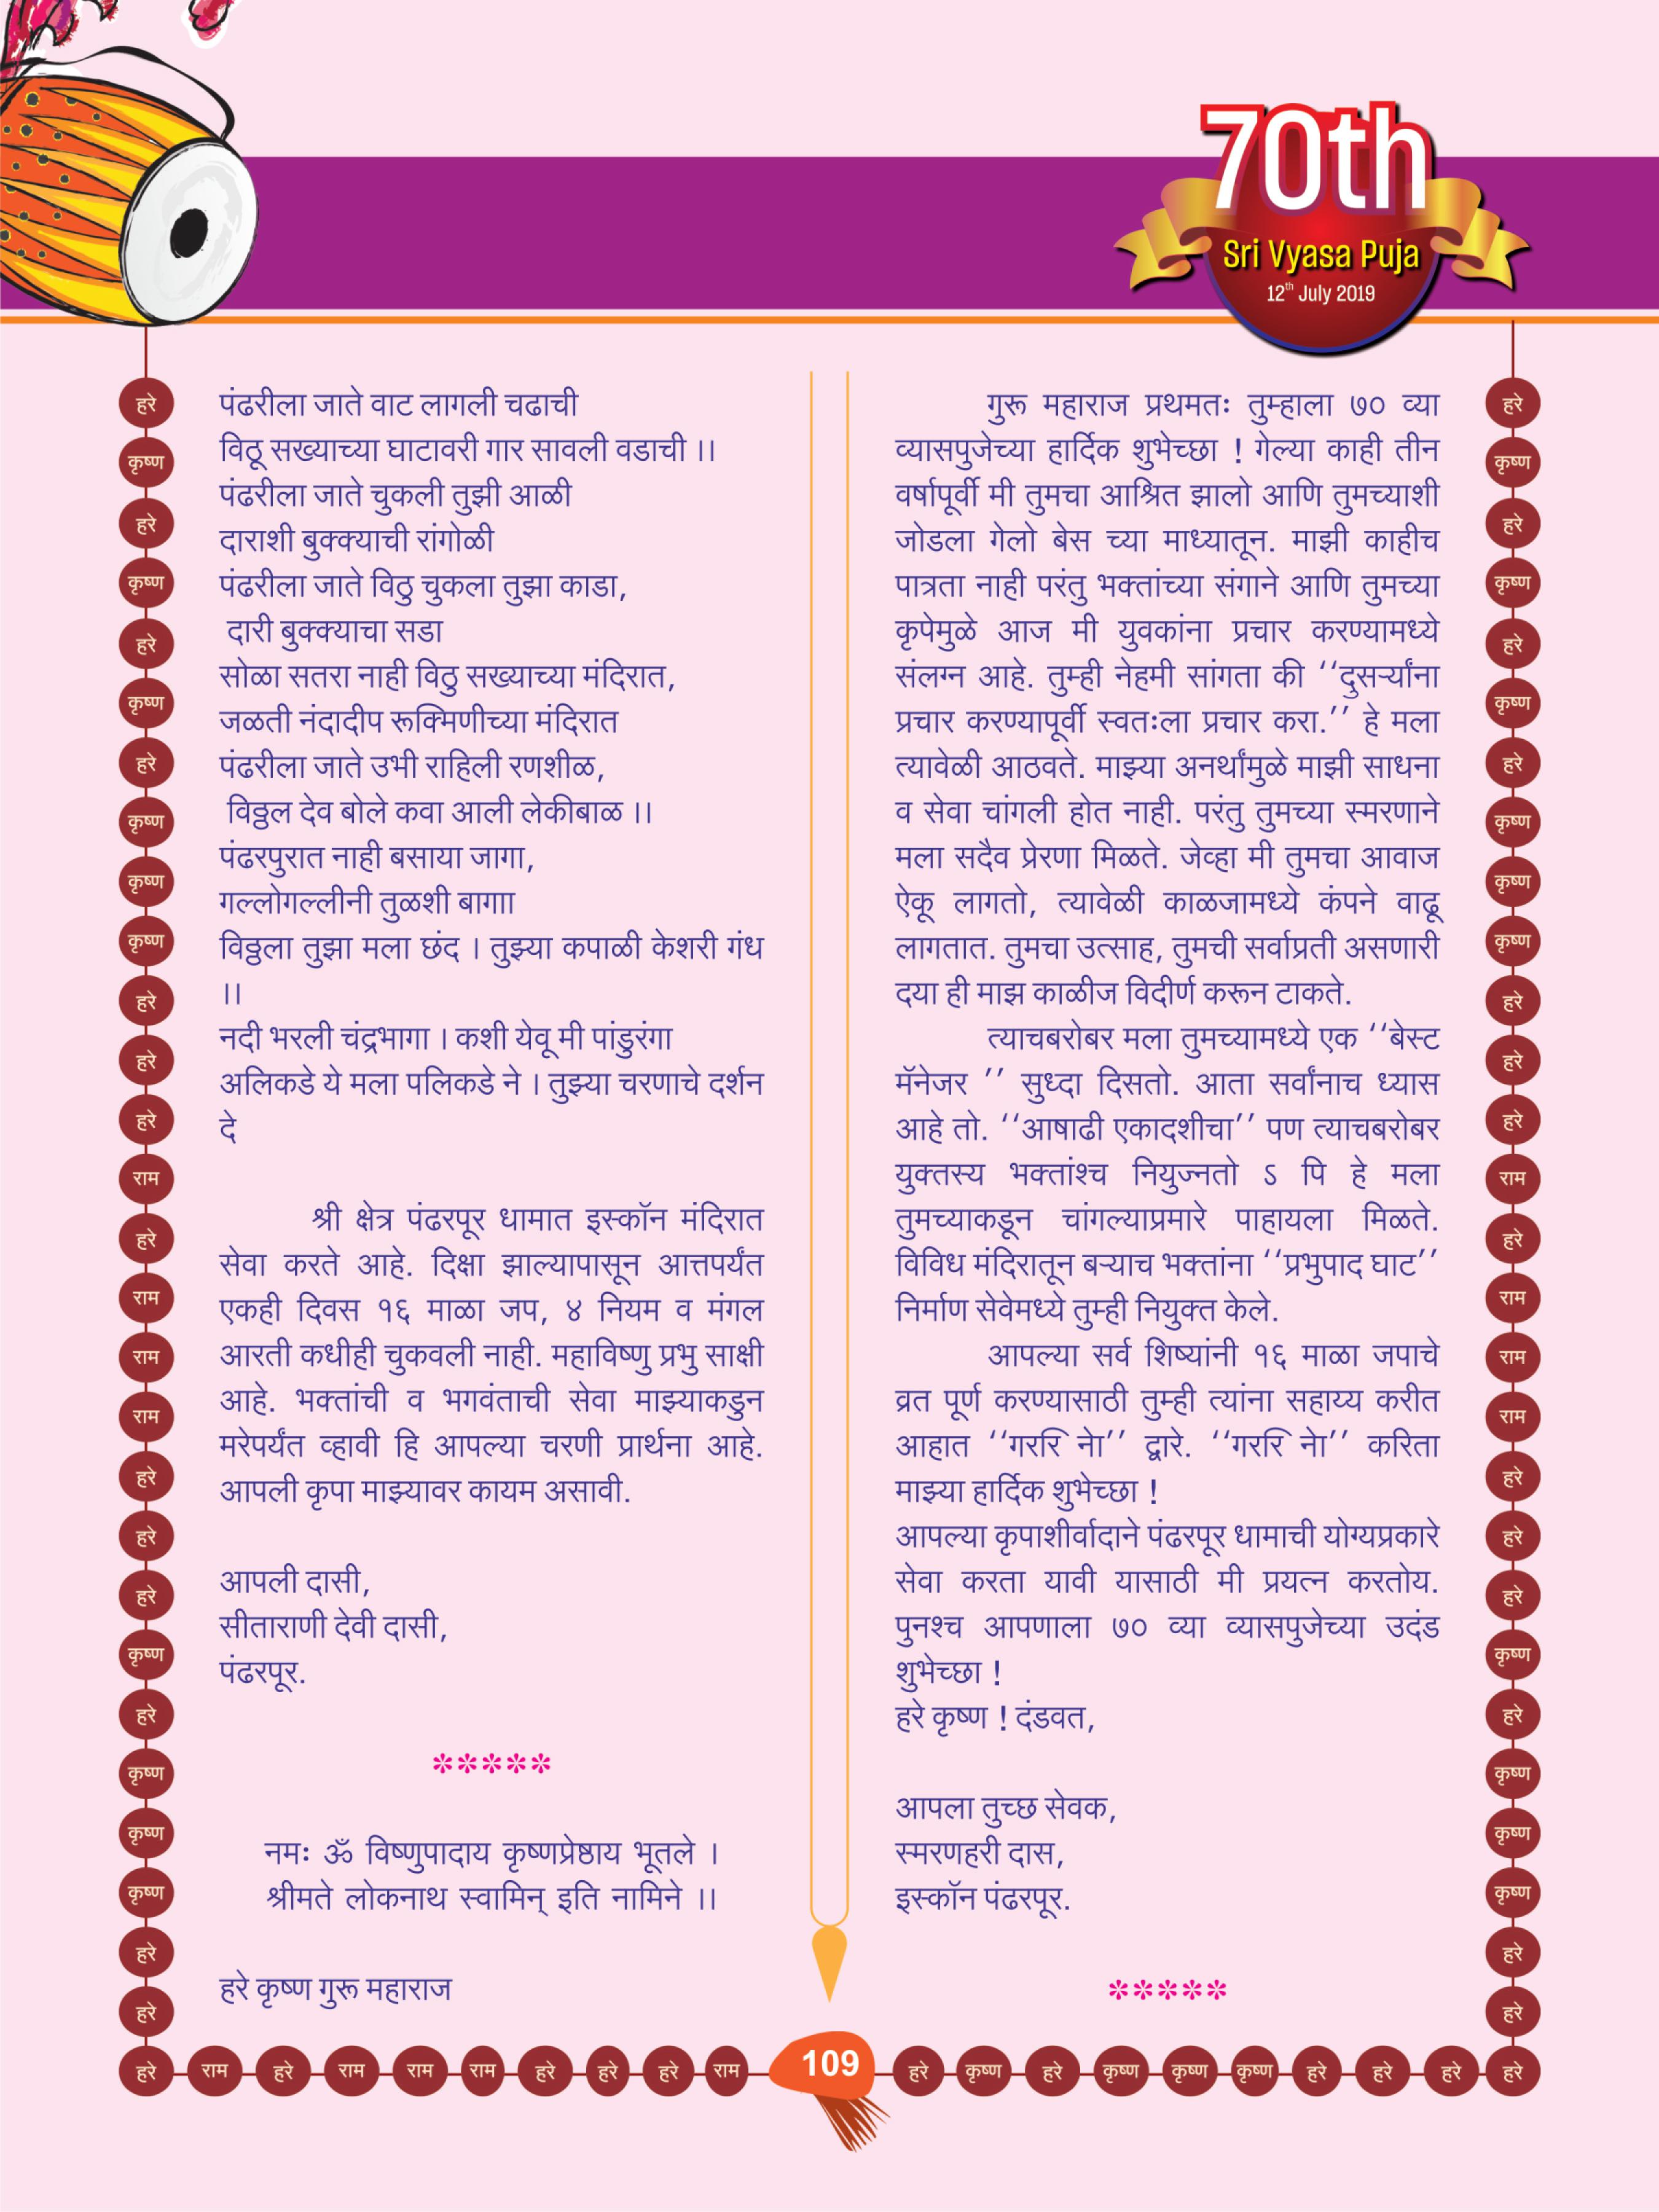 70th
Sri Vyasa Puja
12th July 2019
पंढरीला जाते वाट लागली चढाची
विठू सख्याच्या घाटावरी गार सावली वडाची ।।
पंढरीला जाते चुकली तुझी आळी
दाराशी बुक्क्याची रांगोळी
पंढरीला जाते विठु चुकला तुझा काडा,
दारी बुक्क्याचा सडा
सोळा सतरा नाही विठु सख्याच्या मंदिरात,
जळती नंदादीप रूक्मिणीच्या मंदिरात
पंढरीला जाते उभी राहिली रणशीळ,
विठ्ठल देव बोले कवा आली लेकीबाळ ।।
पंढरपुरात नाही बसाया जागा,
गल्लोगल्लीनी तुळशी बागाा
विठ्ठला तुझा मला छंद । तुझ्या कपाळी केशरी गंध
।।
नदी भरली चंद्रभागा । कशी येवू मी पांडुरंगा
अलिकडे ये मला पलिकडे ने । तुझ्या चरणाचे दर्शन
दे
श्री क्षेत्र पंढरपूर धामात इस्कॉन मंदिरात
सेवा करते आहे. दिक्षा झाल्यापासून आत्तपर्यंत
एकही दिवस १६ माळा जप, ४ नियम व मंगल
आरती कधीही चुकवली नाही. महाविष्णु प्रभु साक्षी
आहे. भक्तांची व भगवंताची सेवा माझ्याकडुन
मरेपर्यंत व्हावी हि आपल्या चरणी प्रार्थना आहे.
आपली कृपा माझ्यावर कायम असावी.
आपली दासी,
सीताराणी देवी दासी,
पंढरपूर.
*****
नमः ॐ विष्णुपादाय कृष्णप्रेष्ठाय भूतले ।
श्रीमते लोकनाथ स्वामिन् इति नामिने ।।
हरे कृष्ण गुरू महाराज
गुरू महाराज प्रथमतः तुम्हाला ७० व्या
व्यासपुजेच्या हार्दिक शुभेच्छा ! गेल्या काही तीन
वर्षापूर्वी मी तुमचा आश्रित झालो आणि तुमच्याशी
जोडला गेलो बेस च्या माध्यातून. माझी काहीच
पात्रता नाही परंतु भक्तांच्या संगाने आणि तुमच्या
कृपेमुळे आज मी युवकांना प्रचार करण्यामध्ये
संलग्न आहे. तुम्ही नेहमी सांगता की ‘‘दुसऱ्यांना
प्रचार करण्यापूर्वी स्वतःला प्रचार करा.’’ हे मला
त्यावेळी आठवते. माझ्या अनर्थांमुळे माझी साधना
व सेवा चांगली होत नाही. परंतु तुमच्या स्मरणाने
मला सदैव प्रेरणा मिळते. जेव्हा मी तुमचा आवाज
ऐकू लागतो, त्यावेळी काळजामध्ये कंपने वाढू
लागतात. तुमचा उत्साह, तुमची सर्वाप्रती असणारी
दया ही माझ काळीज विदीर्ण करून टाकते.
त्याचबरोबर मला तुमच्यामध्ये एक ‘‘बेस्ट
मॅनेजर ’’ सुध्दा दिसतो. आता सर्वांनाच ध्यास
आहे तो. ‘‘आषाढी एकादशीचा’’ पण त्याचबरोबर
युक्तस्य भक्तांश्च नियुज्नतो ऽ पि हे मला
तुमच्याकडून चांगल्याप्रमारे पाहायला मिळते.
विविध मंदिरातून बऱ्याच भक्तांना ‘‘प्रभुपाद घाट’’
निर्माण सेवेमध्ये तुम्ही नियुक्त केले.
आपल्या सर्व शिष्यांनी १६ माळा जपाचे
व्रत पूर्ण करण्यासाठी तुम्ही त्यांना सहाय्य करीत
आहात द्वारे. करिता
माझ्या हार्दिक शुभेच्छा !
आपल्या कृपाशीर्वादाने पंढरपूर धामाची योग्यप्रकारे
सेवा करता यावी यासाठी मी प्रयत्न करतोय.
पुनश्च आपणाला ७० व्या व्यासपुजेच्या उदंड
शुभेच्छा !
हरे कृष्ण ! दंडवत,
आपला तुच्छ सेवक,
स्मरणहरी दास,
इस्कॉन पंढरपूर.
*****
हरे राम हरे राम राम राम हरे हरे हरे राम 109 हरे कृष्ण हरे कृष्ण कृष्ण कृष्ण हरे हरे हरे हरे